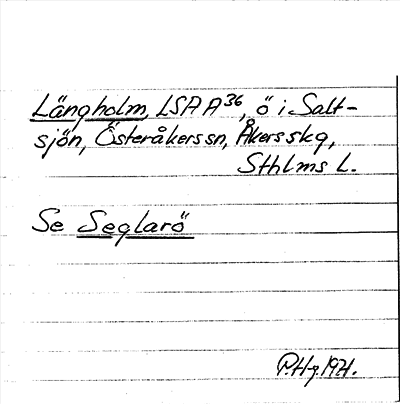 Långholm, LSA A³⁶, ö i Salt-
sjön, Österåkers sn, Åkers skg,
Sthlms L.
Se Seglarö
P.Hg. 1971.